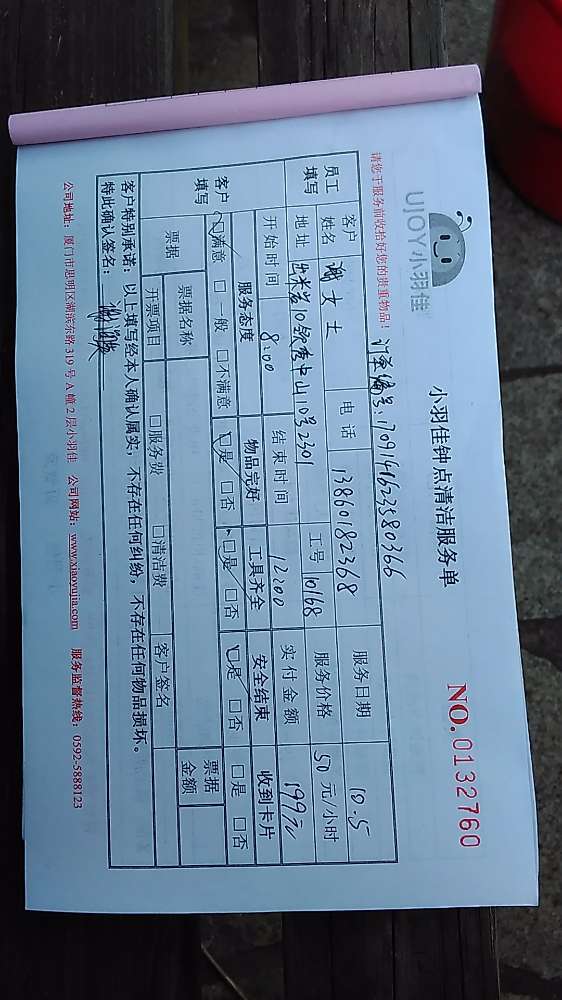 UJOY小羽佳
小羽佳钟点清洁服务单
NO. 0132760
请您于服务前收拾好您的贵重物品！
订单编号：17091491623580366
员工填写
客户姓名 谢女士 电话 13860182368 服务日期 10.5
地址 10号2301 工号 10168 服务价格 50 元/小时
开始时间 8:00 结束时间 12:00 实付金额 199元
客户填写
服务态度 物品完好 工具齐全 安全结束 收到卡片
☑满意 □一般 □不满意 ☑是 □否 ☑是 □否 ☑是 □否 □是 □否
票据 票据名称 票据金额
开票项目 □服务费 □清洁费 客户签名
客户特别承诺：以上填写经本人确认属实，不存在任何纠纷，不存在任何物品损坏。
特此确认签名：
公司地址：厦门市思明区湖滨东路319号A幢2层小羽佳 公司网站：www.xiaoyujia.com 服务监督热线：0592-5888123